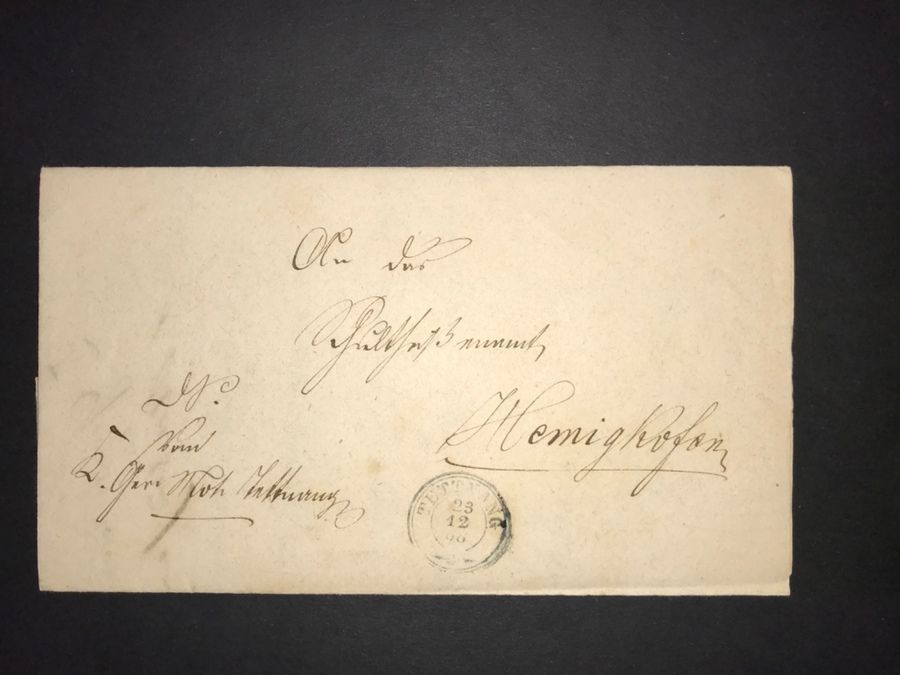 An das
Schultheißenamt,
Hemigkofen
D. S.
Vom
K. Ger. Not. Tettnang
TETTNANG
23
12